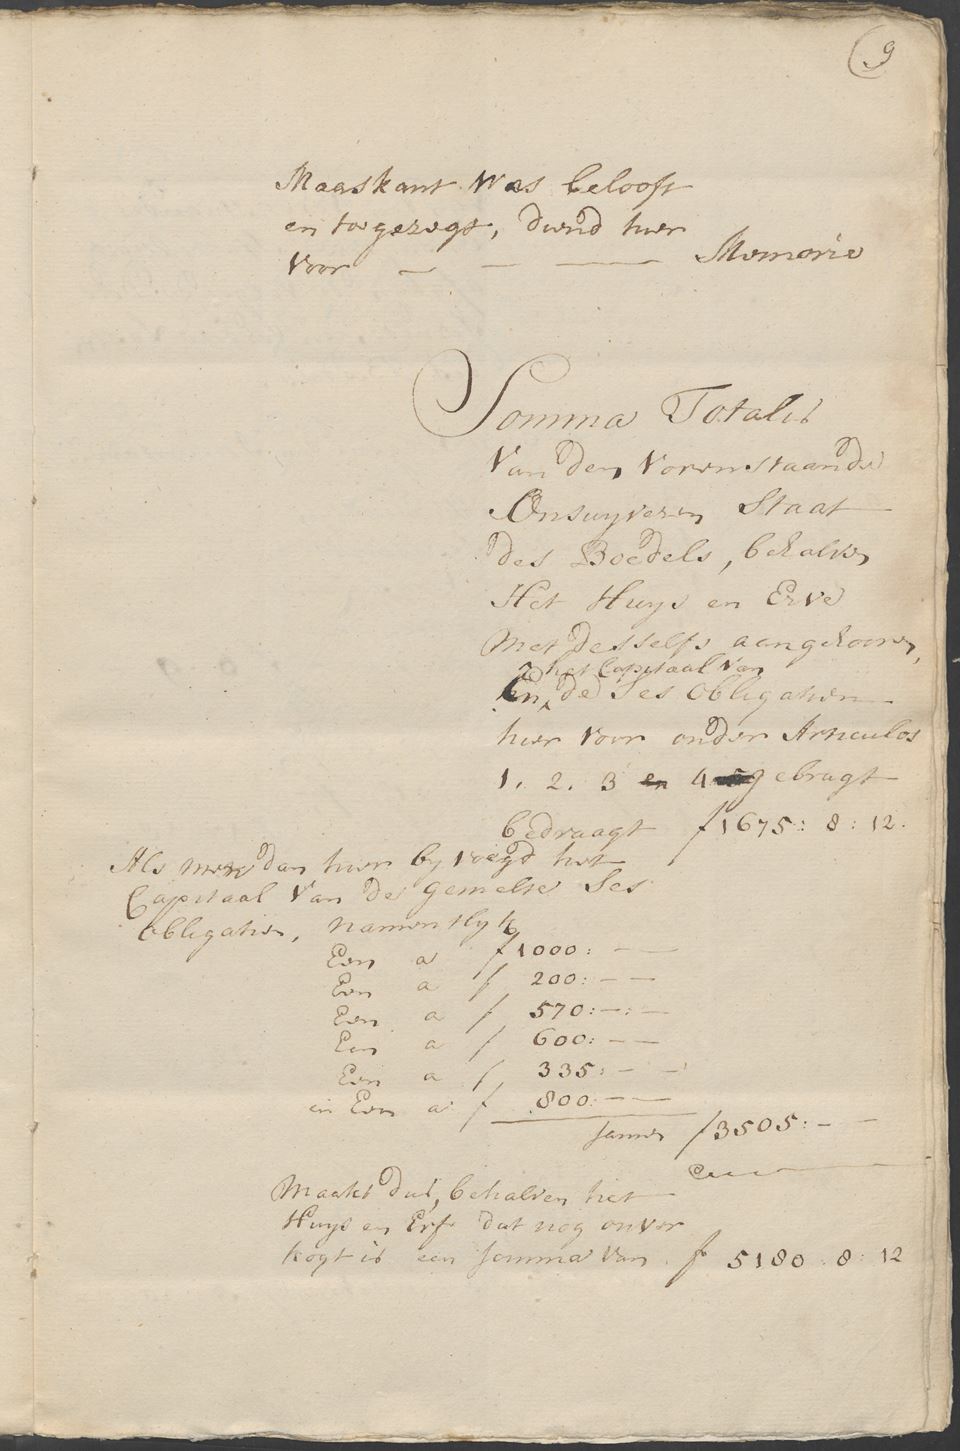 9
Maaskant was belooft
en toegezegt, diend hier
voor — — — Memorie
Somma Totalis
Van den vorenstaande
Onsuyveren Staat
des Boedels, behalven
Het Huys en Erve
met desselfs aangehooren,
het Capitaal van
En de Ses obligatien
hier voor onder Articulos
1. 2. 3 en 4 gebragt
bedraagt f 1675: 8: 12.
Als men dan hier by voegd het
Capitaal van de gemelte Ses
obligatien, namentlyk
Een a f 1000: —
Een a f 200: — —
Een a f 570: —: —
Een a f 600: — —
Een a f 335: — —
en Een a f 800: — —
samen f 3505: — —
Maakt dus, behalven het
Huys en Erf dat nog onver
kogt is een somma van f 5180: 8: 12